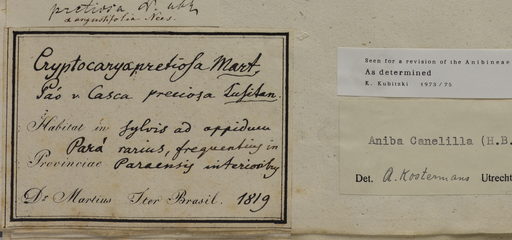 pretiosa
β angustifolia Nees.
Cryptocarya pretiosa Mart.
Páo v. Casca preciosa Lusitan.
Habitat in sylvis ad oppidum
Pará rarius, frequentius in
Provinciae Paraensis interioribus
Dr Martius Iter Brasil. 1819
Seen for a revision of the Anibineae
As determined
K. Kubitzki 1973/75
Aniba Canelilla (H.B.
Det. A. Kostermans Utrecht